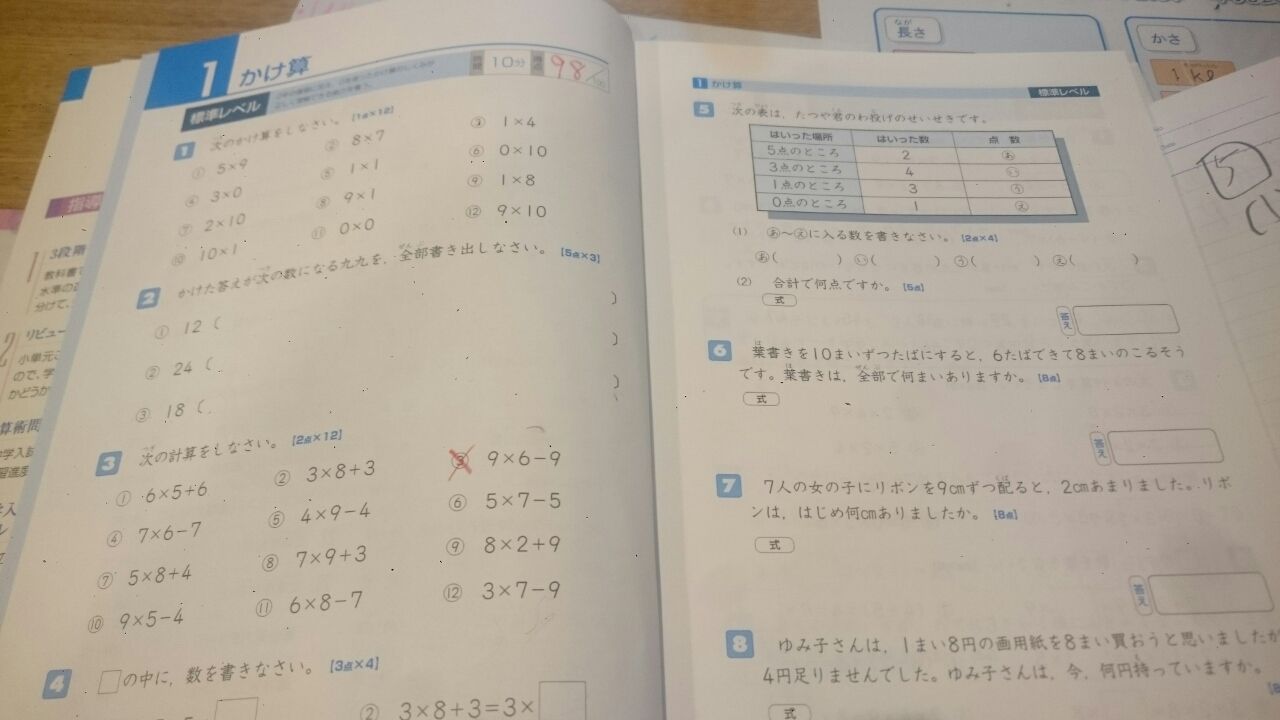 1 かけ算
標準レベル
10分
98
1 次のかけ算をしなさい。 [1点×12]
① 5×9 ② 8×7 ③ 1×4
④ 3×0 ⑤ 1×1 ⑥ 0×10
⑦ 2×10 ⑧ 9×1 ⑨ 1×8
⑩ 10×1 ⑪ 0×0 ⑫ 9×10
2 かけた答えが次の数になる九九を, 全部書き出しなさい。 [5点×3]
① 12 ( )
② 24 ( )
③ 18 ( )
3 次の計算をしなさい。 [2点×12]
① 6×5+6 ② 3×8+3 ③ 9×6−9
④ 7×6−7 ⑤ 4×9−4 ⑥ 5×7−5
⑦ 5×8+4 ⑧ 7×9+3 ⑨ 8×2+9
⑩ 9×5−4 ⑪ 6×8−7 ⑫ 3×7−9
4 □の中に, 数を書きなさい。 [3点×4]
② 3×8+3=3×□
1 かけ算
標準レベル
5 次の表は, たつや君のわ投げのせいせきです。
はいった場所 はいった数 点数
5点のところ 2 あ
3点のところ 4 い
1点のところ 3 う
0点のところ 1 え
(1) あ〜えに入る数を書きなさい。 [2点×4]
あ( ) い( ) う( ) え( )
(2) 合計で何点ですか。 [5点]
式
答え
6 葉書きを10まいずつたばにすると, 6たばできて8まいのこるそう
です。葉書きは, 全部で何まいありますか。 [8点]
式
答え
7 7人の女の子にリボンを9cmずつ配ると, 2cmあまりました。リボ
ンは, はじめ何cmありましたか。 [8点]
式
答え
8 ゆみ子さんは, 1まい8円の画用紙を8まい買おうと思いましたが
4円足りませんでした。ゆみ子さんは, 今, 何円持っていますか。
式
長さ
かさ
指導
3段階
教科書
水準の
分けて,
2 リビュー
小単元
ので, 学
かどうか
算術問
中学入試
5